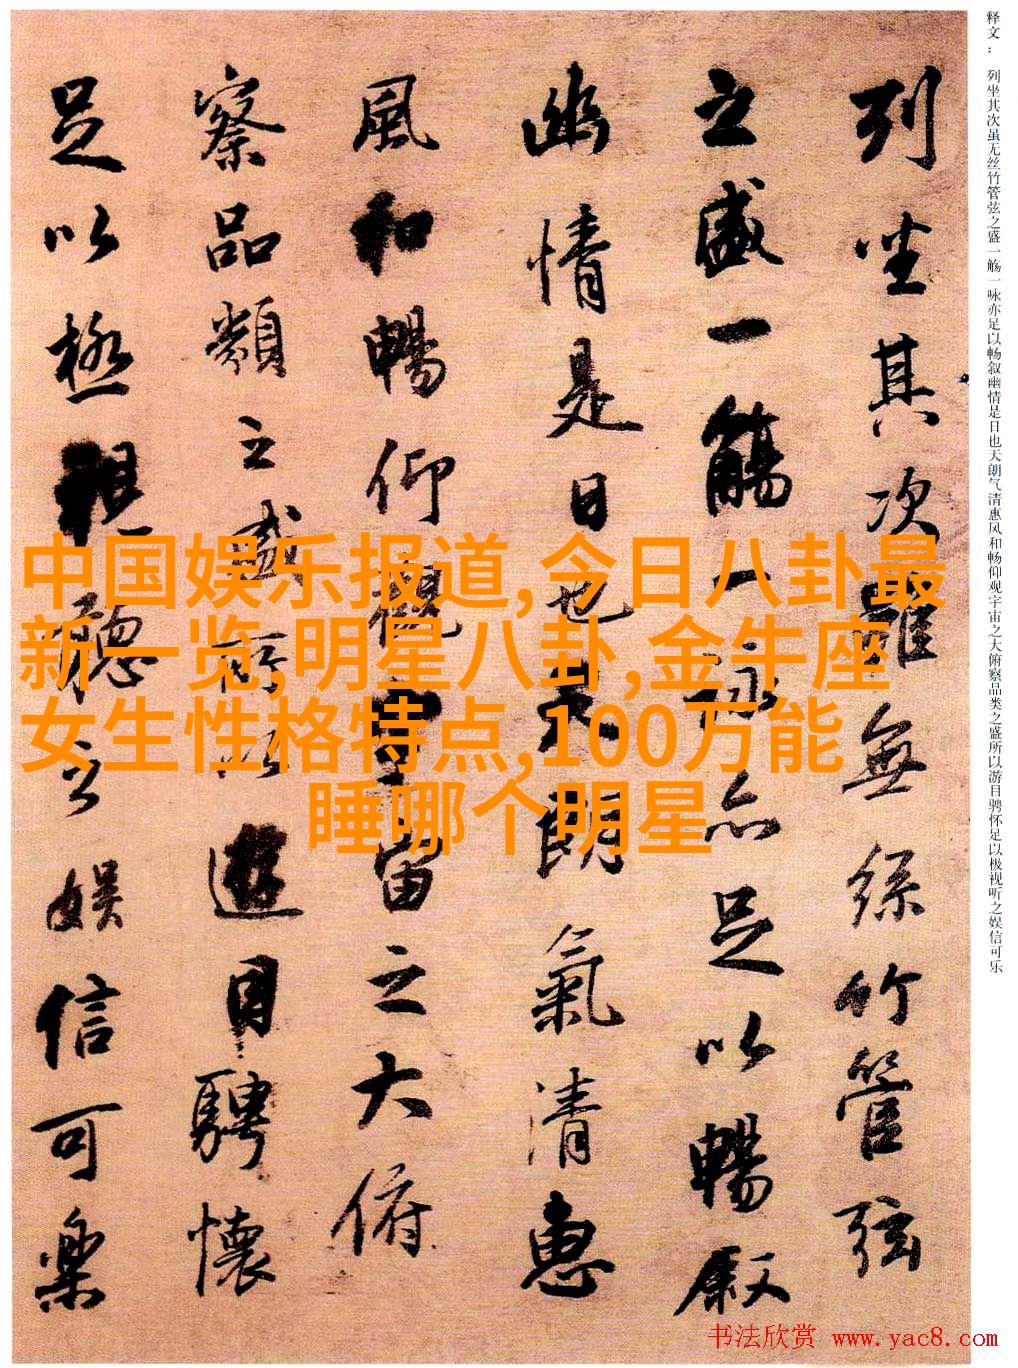 列坐其次雖無絲竹管弦
之盛一觴一詠亦足以暢叙
幽情是日也天朗氣清惠
風和暢仰觀宇宙之大俯
察品類之盛所以遊目騁懷
足以極視聽之娱信可樂
释文：列坐其次虽无丝竹管弦之盛一觞一咏亦足以畅叙幽情是日也天朗气清惠风和畅仰观宇宙之大俯察品类之盛所以游目骋怀足以极视听之娱信可乐
中国娱乐报道,今日八卦最
新一览,明星八卦,金牛座
女生性格特点,100万能
睡哪个明星
书法欣赏 www.yac8.com